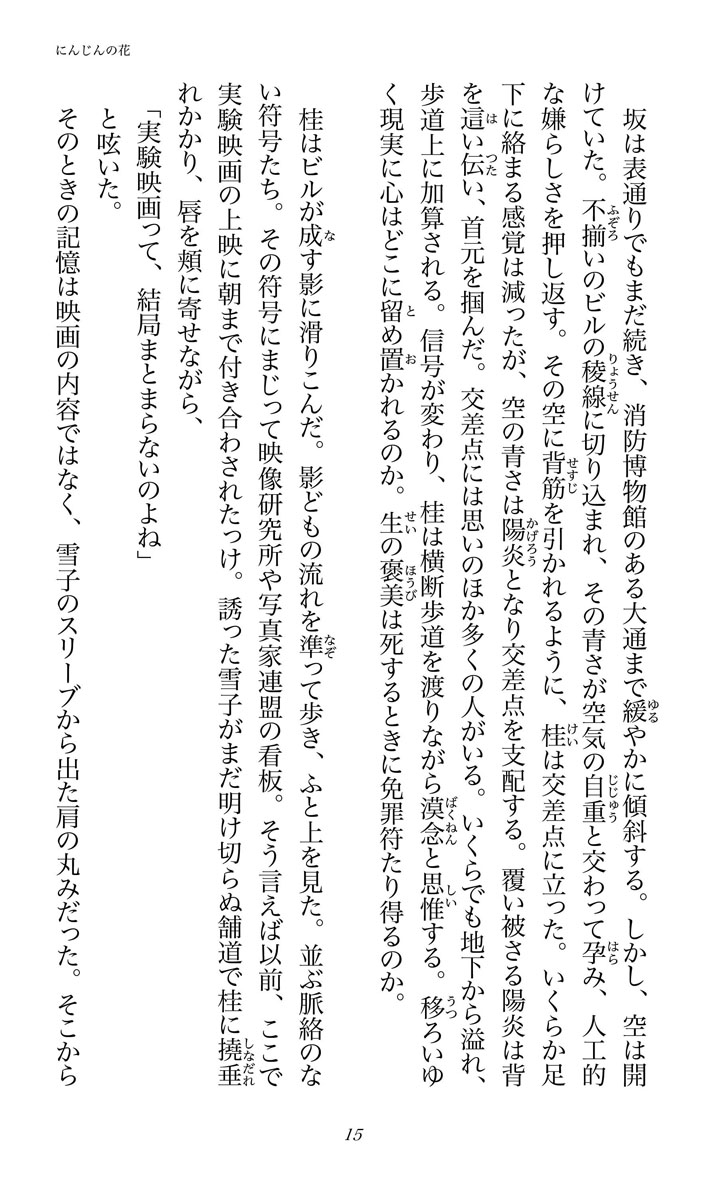 にんじんの花
坂は表通りでもまだ続き、消防博物館のある大通まで緩やかに傾斜する。しかし、空は開
けていた。不揃いのビルの稜線に切り込まれ、その青さが空気の自重と交わって孕み、人工的
な嫌らしさを押し返す。その空に背筋を引かれるように、桂は交差点に立った。いくらか足
下に絡まる感覚は減ったが、空の青さは陽炎となり交差点を支配する。覆い被さる陽炎は背
を這い伝い、首元を掴んだ。交差点には思いのほか多くの人がいる。いくらでも地下から溢れ、
歩道上に加算される。信号が変わり、桂は横断歩道を渡りながら漠念と思惟する。移ろいゆ
く現実に心はどこに留め置かれるのか。生の褒美は死するときに免罪符たり得るのか。
桂はビルが成す影に滑りこんだ。影どもの流れを準って歩き、ふと上を見た。並ぶ脈絡のな
い符号たち。その符号にまじって映像研究所や写真家連盟の看板。そう言えば以前、ここで
実験映画の上映に朝まで付き合わされたっけ。誘った雪子がまだ明け切らぬ舗道で桂に撓垂
れかかり、唇を頬に寄せながら、
「実験映画って、結局まとまらないのよね」
と呟いた。
そのときの記憶は映画の内容ではなく、雪子のスリーブから出た肩の丸みだった。そこから
15